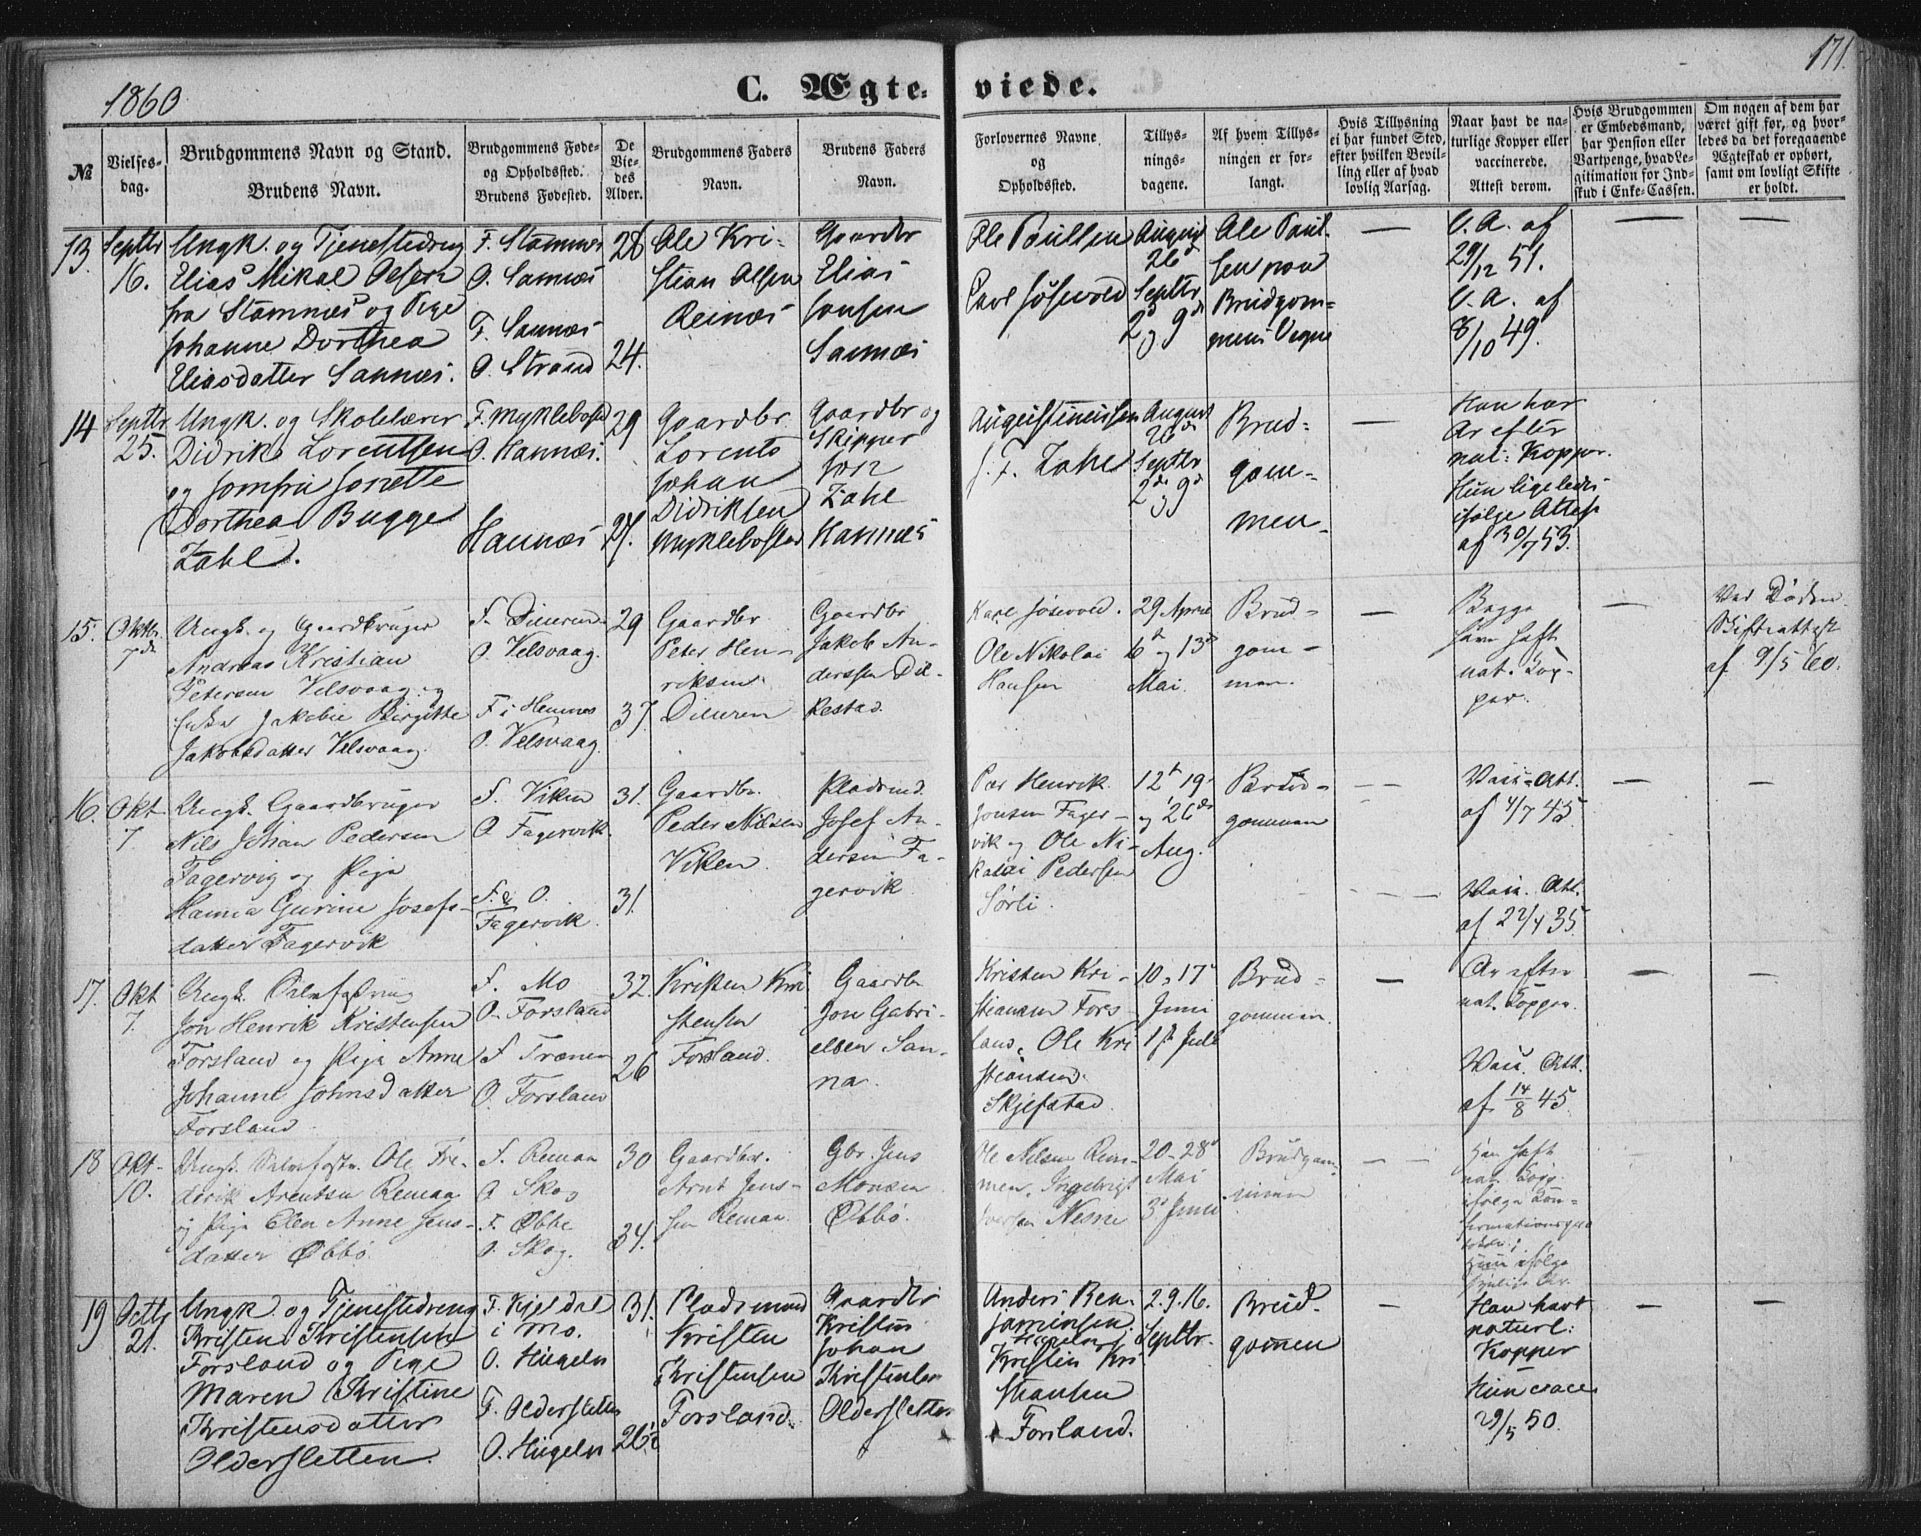 1860
C. Ægte-
viede.
171.
№
Vielses-
dag.
Brudgommens Navn og Stand.
Brudens Navn.
Brudgommens Føde-
og Opholdssted.
Brudens Fødested.
De
Vie-
des
Alder.
Brudgommens Faders
Navn.
Brudens Faders
Navn.
Forlovernes Navne
og
Opholdssted.
Tillys-
nings-
dagene.
Af hvem Tillys-
ningen er for-
langt.
Hvis Tillysning
ei har fundet Sted,
efter hvilken Bevil-
ling eller af hvad
lovlig Aarsag.
Naar havt de na-
turlige Kopper eller
vaccinerede.
Attest derom.
Hvis Brudgommen
er Embedsmand,
har Pension eller
Vartpenge, hvad Le-
gitimation for Ind-
skud i Enke-Cassen.
Om nogen af dem har
været gift før, og hvor-
ledes da det foregaaende
Ægteskab er ophørt,
samt om lovligt Skifte
er holdt.
13.
Septbr
16.
Ungk. og Tjenestedreng
Elias Mikal Olsen
fra Stamnes og Pige
Johanne Dorthea
Eliasdatter Sannæs.
F. Stamnes
O. Sannæs
F. Sannæs
O. Strand
28
24.
Ole Kri-
stian Olsen
Reinæs
Gaardbr
Elias
Jonsen
Sannæs
Ole Paulsen
Carl Jøsevold
August
26d
Septbr
2d og 9d
Ole Paul-
sen paa
Brudgom-
mens Vegne
—
V. A. af
29/12 51.
V. A. af
8/10 49.
—
—
14
Septbr.
25.
Ungk. og Skolelærer
Didrik Lorentsen
og Jomfru Jonette
Dorthea Bugge
Zahl.
F. Myklebostad
O. Hannæs.
Hannæs
29
27.
Gaardbr.
Lorents
Johan
Didriksen
Myklebostad
Gaardbr og
Skipper
Jon
Zahl
Hannæs
Augustinussen
J. F. Zahl
August
26d
Septbr
2d og 9d
Brud-
gom-
men.
—
Han har
Ar efter
nat: Kopper.
Hun ligeledes
ifølge Attest
af 30/7 53.
15.
Oktbr.
7de
Ungk. og Gaardbruger
Andreas Kristian
Petersen Velsvaag og
Enke Jakobie Birgitte
Jakobsdatter Velsvaag.
O. Velsvaag.
F. i Hemnes
O. Velsvaag.
29
37.
Gaardbr
Peter Hen-
riksen
Gaardbr
Jakob An-
derssen Dil-
kestad.
Karl Jøsevold.
Ole Nikolai
Hansen
29 April
6te og 13de
Mai.
Brud-
gom-
men.
—
Begge
have haft
nat. Kop-
per.
—
Ved Døden
Skifteattest
af 9/5 60.
16.
Okt.
7.
Ungk. Gaardbruger
Nils Johan Pedersen
Fagervig og Pige
Hanna Gurine Josefs-
datter Fagervik
F. Viken
O. Fagervik.
F. & O.
Fagervik.
31.
31.
Gaardbr.
Peder Nilsen
Viken
Pladsmd.
Josef An-
dersen Fa-
gervik.
Per Henrik
Jonsen Fager-
vik og Ole Ni-
kolai Pedersen
Sørli.
12te 19.
og 26de
Aug.
Brud-
gommen
—
Vacc. Att.
af 4/7 45
Vacc. Att.
af 22/4 35
—
—
17.
Okt
7.
Jon Henrik Kristensen
Forsland og Pige Anne
Johanne Johnsdatter
Forsland
F. Mo
O. Forsland
F. Trænen
O. Forsland
32.
26
Kristen Kri
stensen
Forsland.
Gaardbr
Jon Gabri-
elsen San-
na.
Kristen Kri-
stiansen Fors-
land, Ole Kri
stiansen
Skjefstad.
10, 17
Juni
1ste Juli
Brud-
gommen.
—
Ar efter
nat. Kopper.
Vacc. Att.
af 14/8 45.
—
—
18
Okt.
10.
Ole Fre-
derik Arentsen Remaa
og Pige Elen Anne Jens-
datter Øbbø.
F. Remaa
O Skog
F. Øbbe
O. Skog.
30
34.
Gaardbr.
Arnt Jens-
sen Remaa.
Gbr. Jens
Monsen
Øbbø.
Ole Nilsen Rem-
men, Ingebrigt
Iversen Nesne
20-28
Mai
3. Juni
Brudgom-
men
—
Han haft
nat. Kopp.
ifølge Kon-
firmationspro
tokol;
Hun ifølge
19
Octbr
21.
Ungk. og Tjenestedreng
Kristen Kristensen
Forsland og Pige
Maren Kristine
Kristensdatter
Oldersletten.
F. Kjeldal
i Mo.
O. Hugeln
F. Oldersletten
O. Hugeln
31.
26½
Pladsmand
Kristen
Kristensen
Forsland.
Gaardbr
Kristen
Johan
Kristensen
Oldersletten
Anders Ben-
jaminsen
Hugeln,
Kristen Kri
stiansen
Forsland.
2. 9. 16.
Septbr.
Brud-
gommen
—
Han havt
naturl:
Kopper
Hun vacc
29/5 50.
—
—